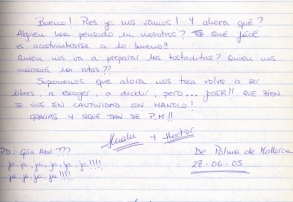 Bueno! Pues ya nos vamos! Y ahora qué?
Alguien ha pensado en nosotros? Qué fácil
es acostumbrarse a lo bueno!!
Quien nos va a preparar las tostaditas? Quien nos
las atas??
Suponemos que ahora nos toca volver a ser
libres, a escoger, a decidir, pero... JODER!! QUE BIEN
SE VIVE EN CAUTIVIDAD CON MANOLO!
GRACIAS Y SIGUE TAN DE P.M!!
y Hector
PD: Guía Azul???
ja, ja, ja, ja, ja, ja!!!!
ja, ja, ja, ja!!!!
De Palma de Mallorca
28-06-05